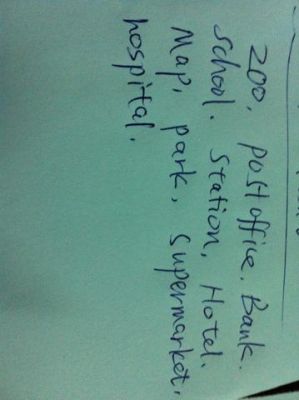 zoo, post office. Bank.
school. Station, Hotel.
Map, park, supermarket,
hospital.